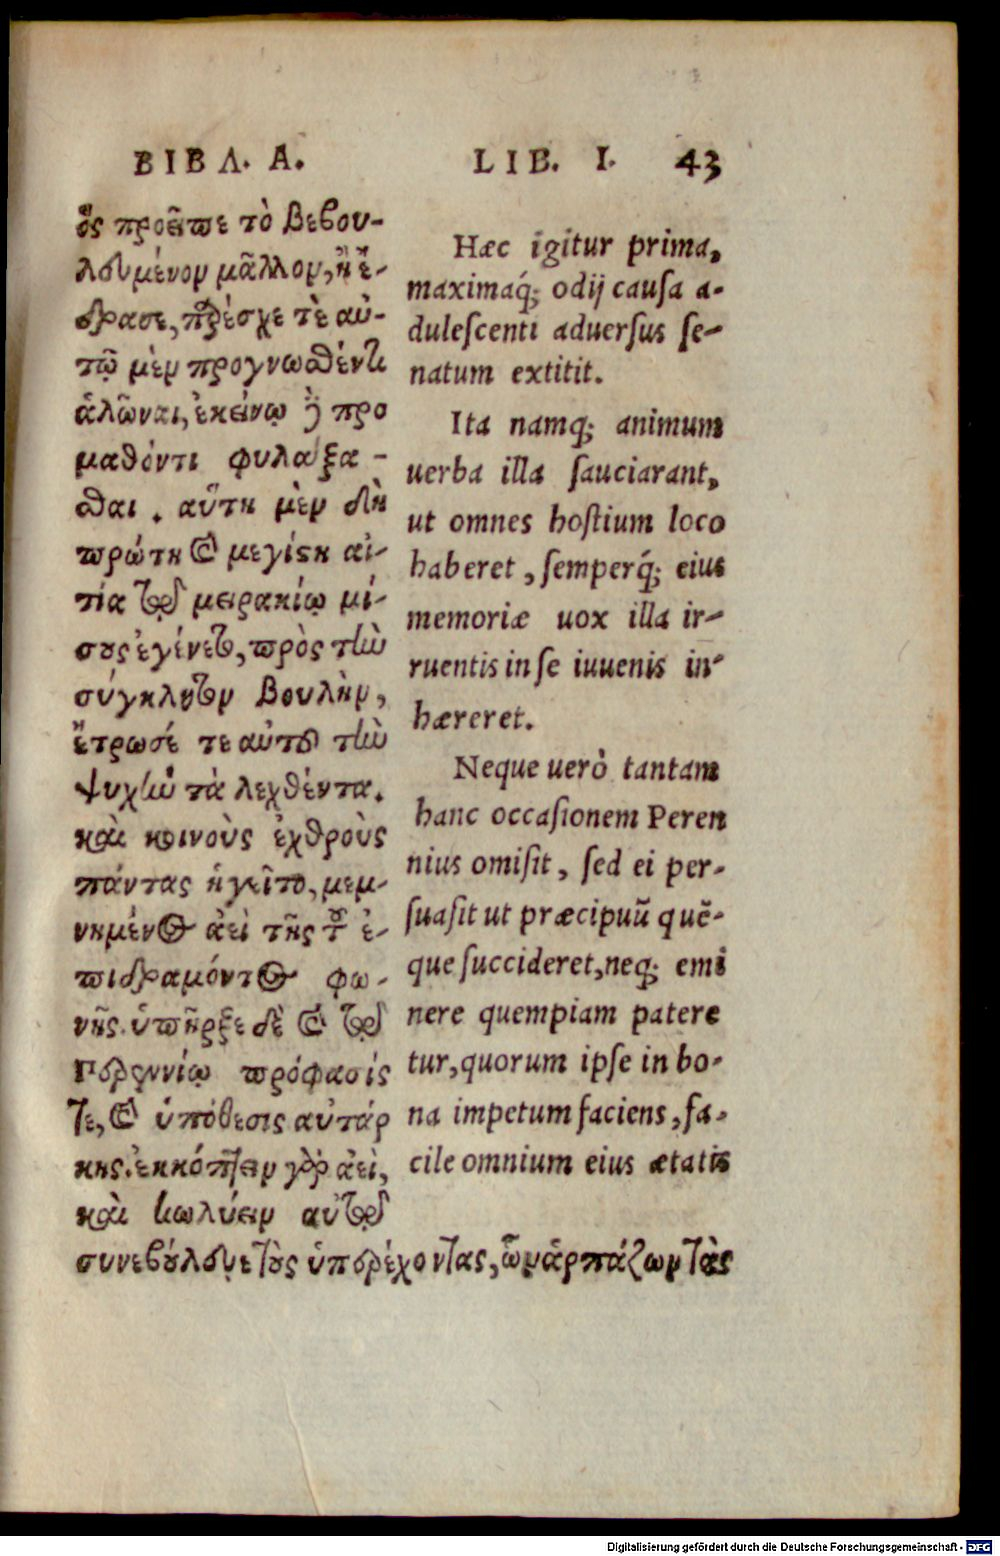 ΒΙΒΛ. Α.
ὃς προεῖπε τὸ βεβου-
λευμένον μᾶλλον, ἢ ἔ-
δρασε, παρέσχε τὲ αὑ-
τῷ μὲν προγνωσθέντι
ἁλῶναι, ἐκείνῳ δὲ προ
μαθόντι φυλάξα-
σθαι. αὕτη μὲν δὴ
πρώτη καὶ μεγίστη αἰ-
τία τῷ μειρακίῳ μί-
σους ἐγένετο, πρὸς τὴν
σύγκλητον βουλὴν,
ἔτρωσέ τε αὐτοῦ τὴν
ψυχὴν τὰ λεχθέντα.
καὶ κοινοὺς ἐχθροὺς
πάντας ἡγεῖτο, μεμ-
νημένος ἀεὶ τῆς τοῦ ἐ-
πιδραμόντος φω-
νῆς. ὑπῆρξε δὲ καὶ τῷ
Περεννίῳ πρόφασίς
τε, καὶ ὑπόθεσις αὐτάρ
κης. ἐκκόπτειν γὰρ ἀεὶ,
καὶ κωλύειν αὐτῷ
συνεβούλευε τοὺς ὑπερέχοντας, ὧν ἁρπάζων τὰς
LIB. I. 43
Hæc igitur prima,
maximaq́; odij causa a-
dulescenti aduersus se-
natum extitit.
Ita namq; animum
uerba illa sauciarant,
ut omnes hostium loco
haberet, semperq́; eius
memoriæ uox illa ir-
ruentis in se iuuenis in-
hæreret.
Neque uerò tantam
hanc occasionem Peren
nius omisit, sed ei per-
suasit ut præcipuũ quẽ-
que succideret, neq; emi
nere quempiam patere
tur, quorum ipse in bo-
na impetum faciens, fa-
cile omnium eius ætatis
Digitalisierung gefördert durch die Deutsche Forschungsgemeinschaft - DFG